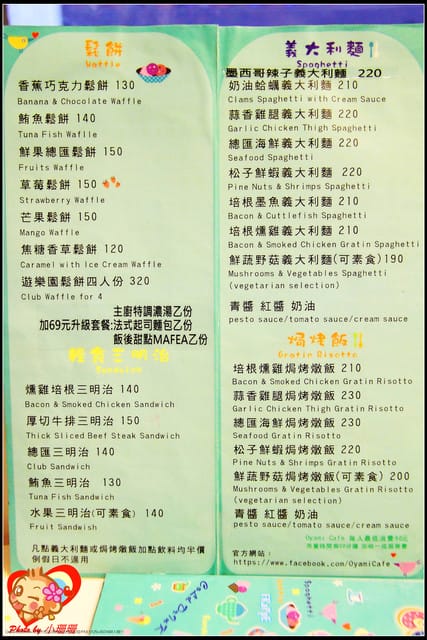 鬆餅
Waffle
香蕉巧克力鬆餅 130
Banana & Chocolate Waffle
鮪魚鬆餅 140
Tuna Fish Waflle
鮮果總匯鬆餅 150
Fruits Waffle
草莓鬆餅 150
Strawberry Waffle
芒果鬆餅 150
Mango Waffle
焦糖香草鬆餅 120
Caramel with Ice Cream Waffle
遊樂園鬆餅四人份 320
Club Waffle for 4
主廚特調濃湯乙份
加69元升級套餐:法式起司麵包乙份
飯後甜點MAFEA乙份
輕食三明治
Sandwich
燻雞培根三明治 140
Bacon & Smoked Chicken Sandwich
厚切牛排三明治 150
Thick Sliced Beef Steak Sandwich
總匯三明治 140
Club Sandwich
鮪魚三明治 130
Tuna Fish Sandwich
水果三明治(可素食) 140
Fruit Sandwish
凡點義大利麵或焗烤燉飯加點飲料均半價
例假日不適用
義大利麵
Spaghetti
墨西哥辣子義大利麵 220
奶油蛤蠣義大利麵 210
Clams Spaghetti with Cream Sauce
蒜香雞腿義大利麵 220
Garlic Chicken Thigh Spaghetti
總匯海鮮義大利麵 220
Seafood Spaghetti
松子鮮蝦義大利麵 220
Pine Nuts & Shrimps Spaghetti
培根墨魚義大利麵 210
Bacon & Cuttlefish Spaghetti
培根燻雞義大利麵 210
Bacon & Smoked Chicken Gratin Spaghetti
鮮蔬野菇義大利麵(可素食)190
Mushrooms & Vegetables Spaghetti
(vegetarian selection)
青醬 紅醬 奶油
pesto sauce/tomato sauce/cream sauce
焗烤飯
Gratin Risotto
培根燻雞焗烤燉飯 210
Bacon & Smoked Chicken Gratin Risotto
蒜香雞腿焗烤燉飯 230
Garlic Chicken Thigh Gratin Risotto
總匯海鮮焗烤燉飯 230
Seafood Gratin Risotto
松子鮮蝦焗烤燉飯 220
Pine Nuts & Shrimps Gratin Risotto
鮮蔬野菇焗烤燉飯(可素食) 200
Mushrooms & Vegetables Gratin Risotto
(vegetarian selection)
青醬 紅醬 奶油
pesto sauce/tomato sauce/cream sauce
Oyami Cafe 每人最低消費80元
官方網站：
https://www.facebook.com/OyamiCafe
Photo by 小珊珊